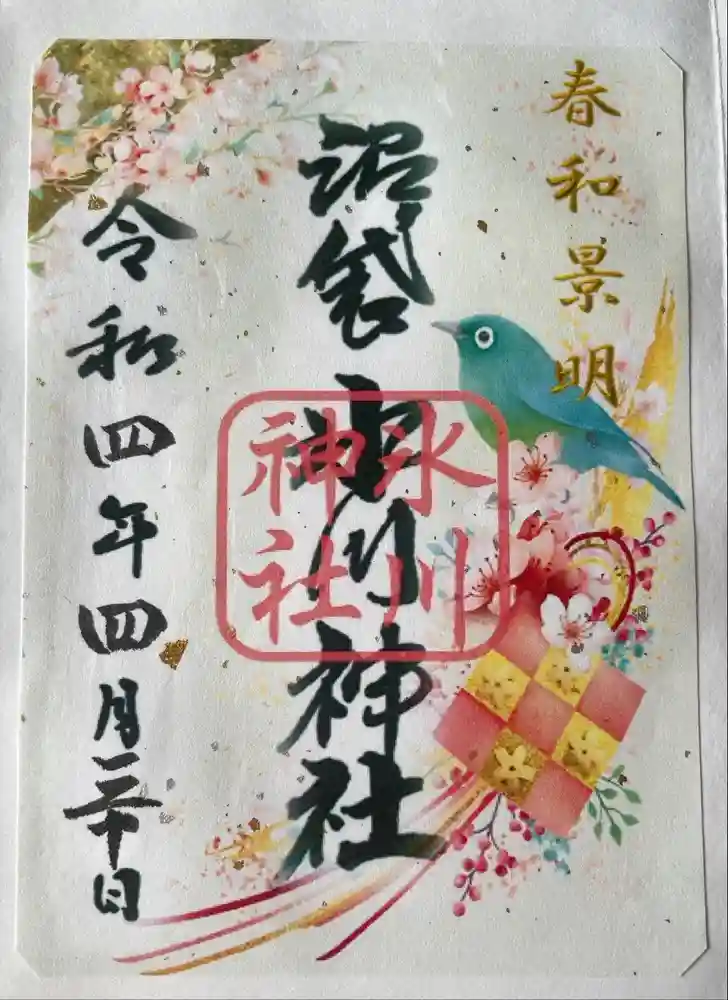 春和景明
沼袋氷川神社
氷川
神社
令和四年四月三十日